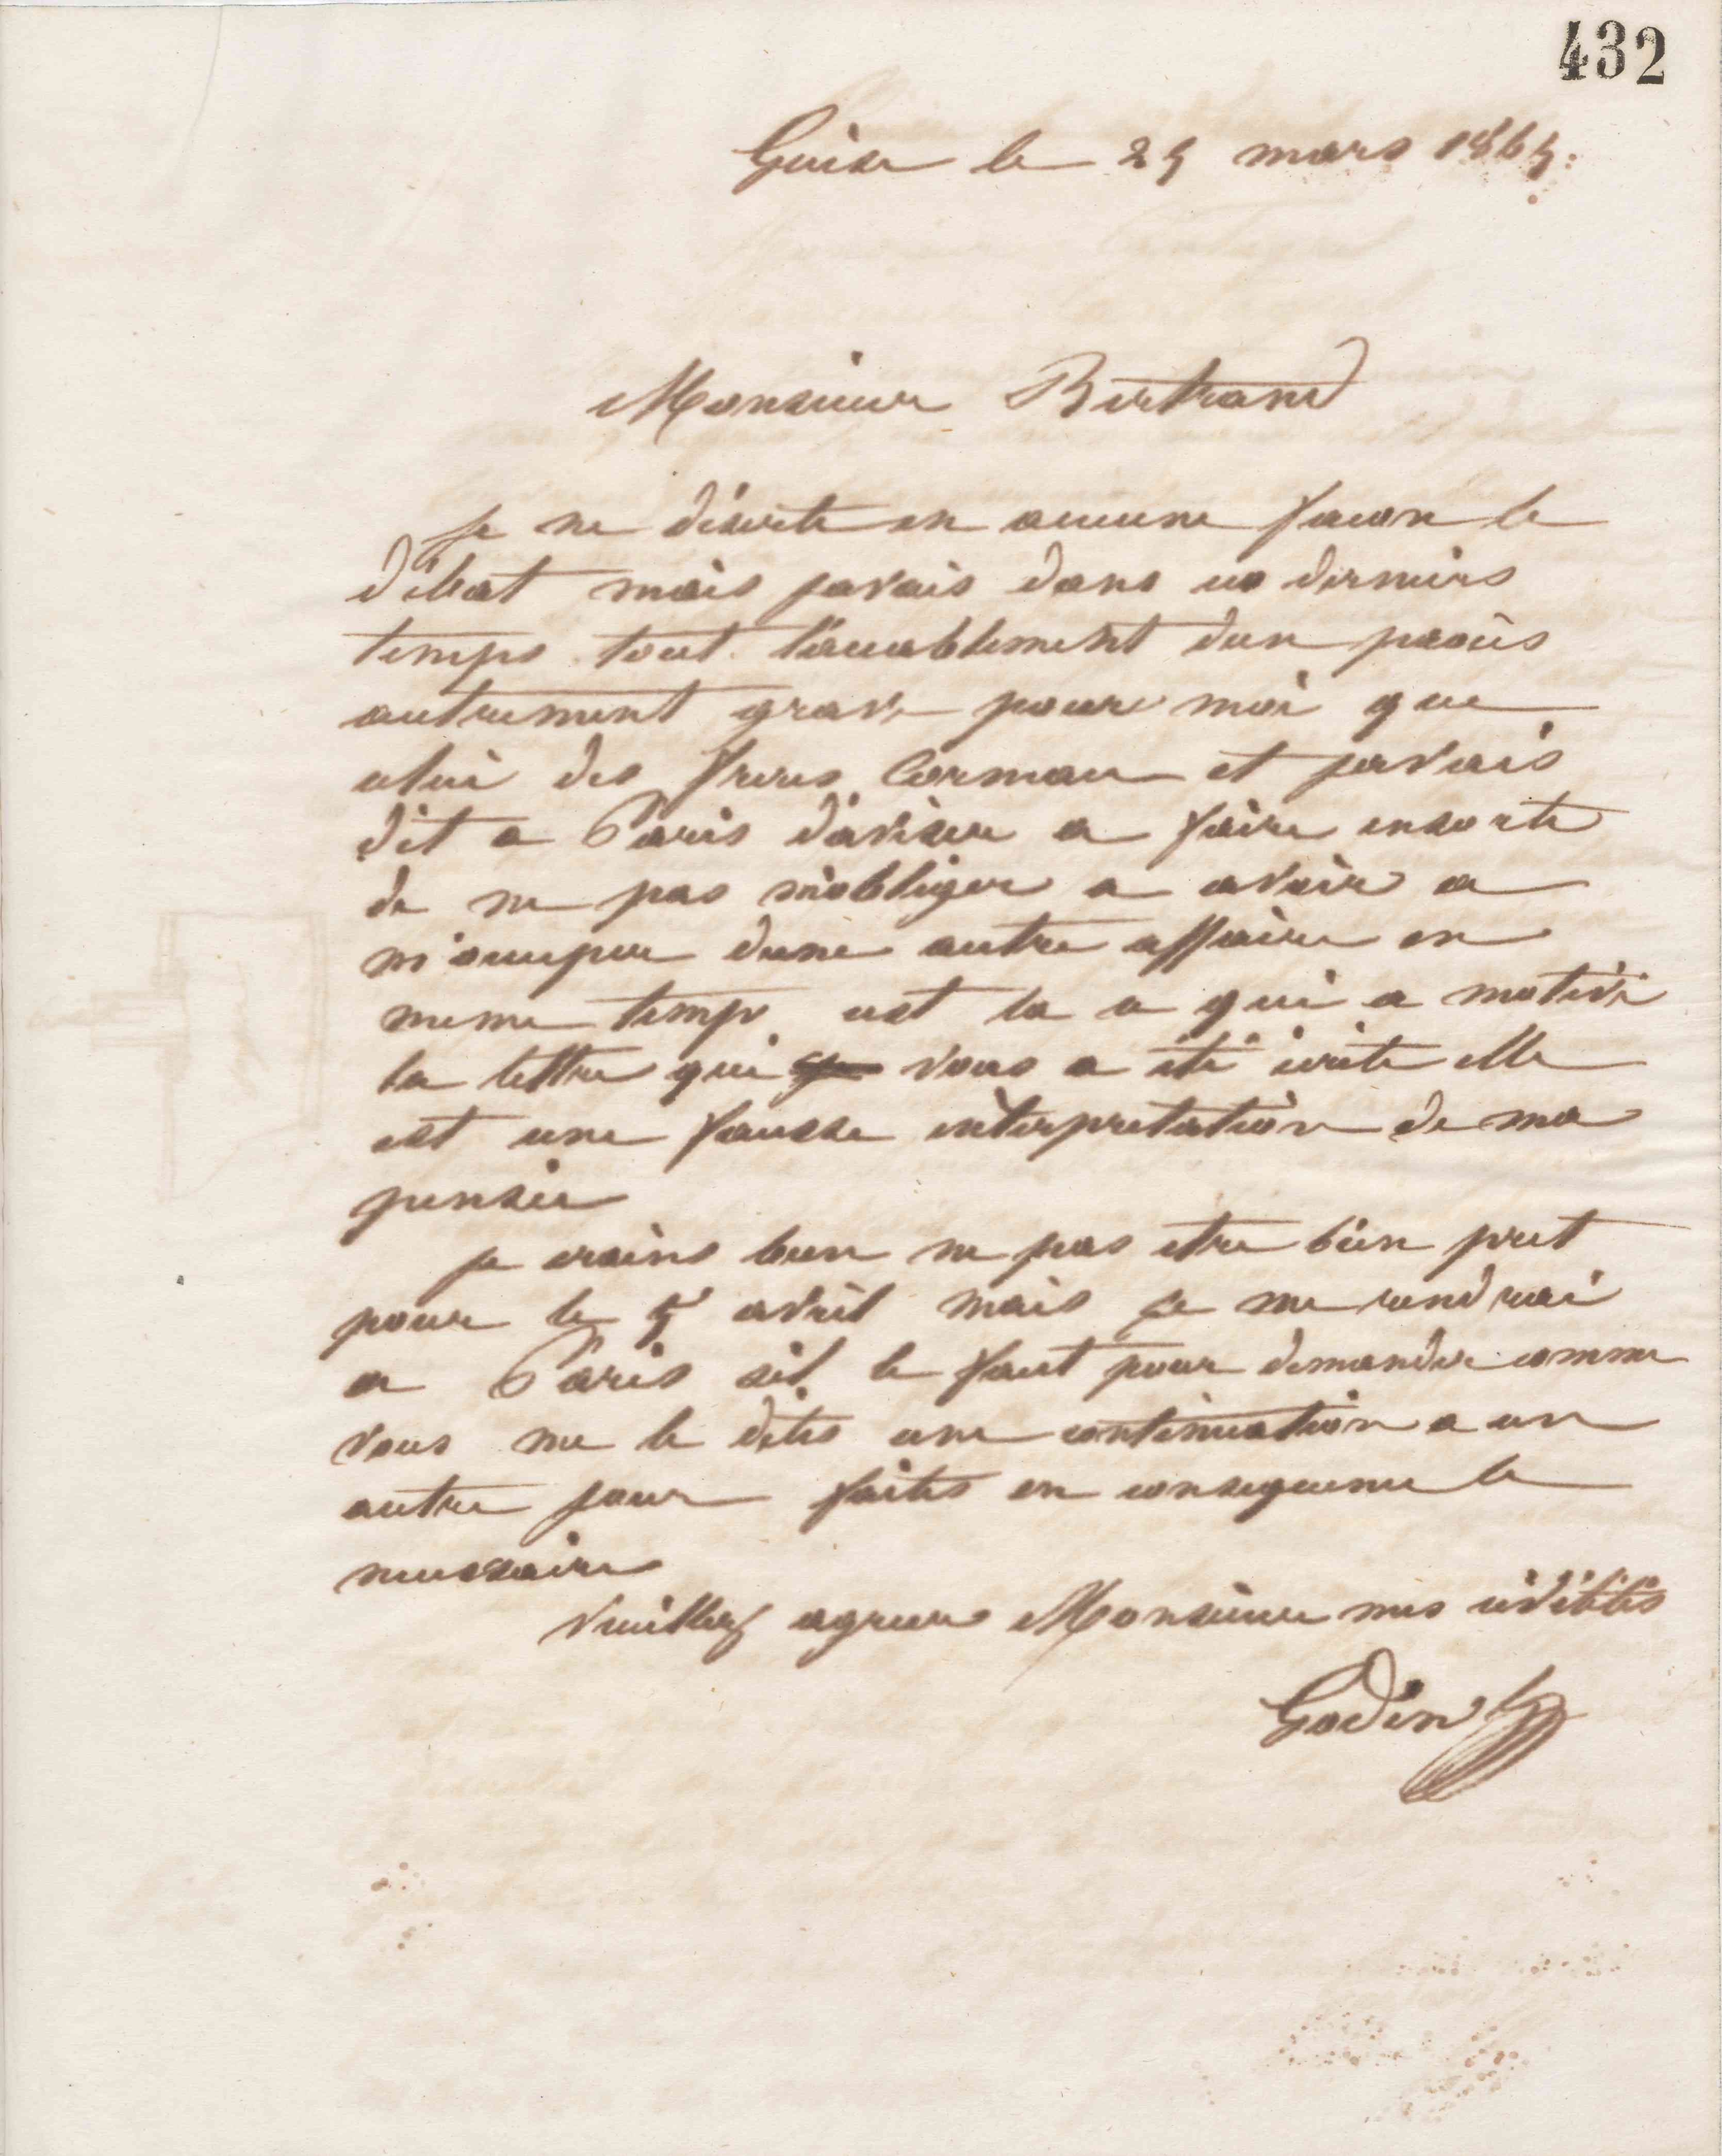 432
Guise le 25 mars 1865.
Monsieur Bertrand
je ne déserte en aucune facon le
débat mais javais dans ces derniers
temps tout l'accablement dun procès
autrement grave pour moi que
celui des freres Corneau et javais
dit a Paris d'aviser a faire ensorte
de ne pas m'obliger a avoir a
m'occuper dune autre affaire en
meme temps cest la ce qui a motivé
la lettre qui vous a été écrite elle
est une fausse intérpretation de ma
pensée
je crains bien ne pas etre bien pret
pour le 5 avril mais je me rendrai
a Paris sil le faut pour demander comme
vous me le dites une continuation a un
autre jour faites en consequence le
necessaire
Veuillez agreer Monsieur mes civilités
Godin